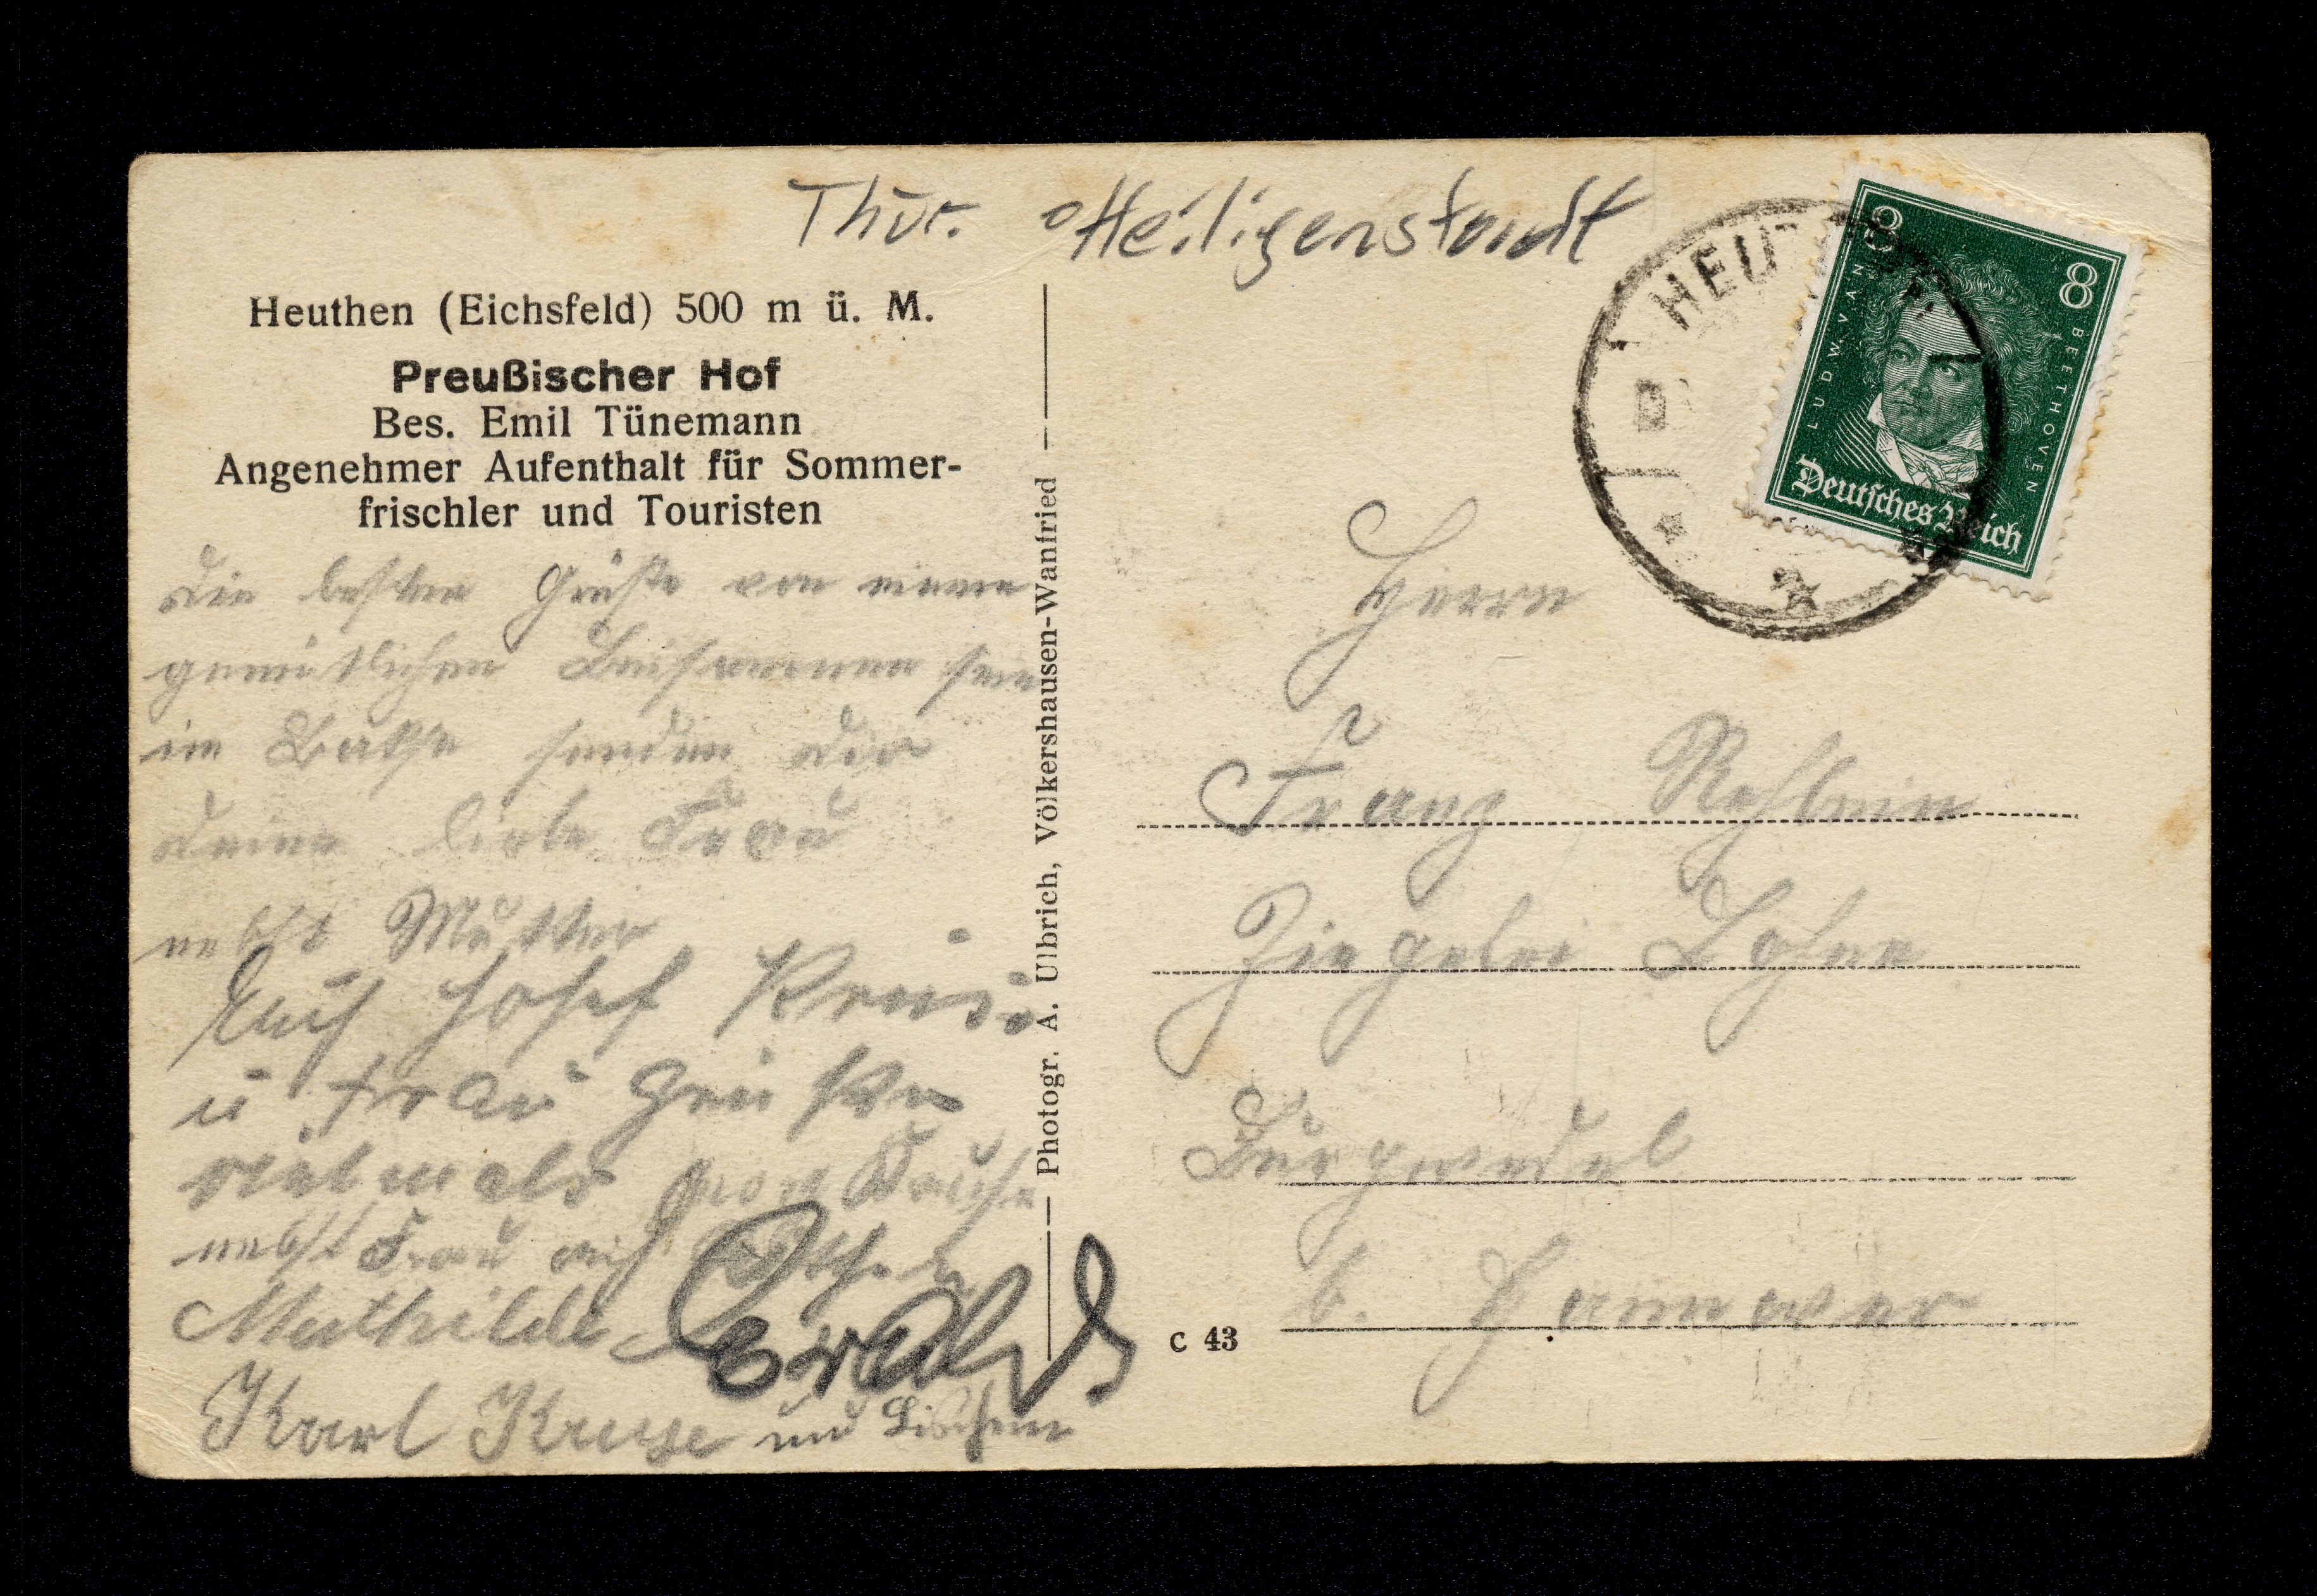 Thür. Heiligenstadt
Heuthen (Eichsfeld) 500 m ü. M.
Preußischer Hof
Bes. Emil Tünemann
Angenehmer Aufenthalt für Sommer-
frischler und Touristen
Die besten Grüße von einem
gemütlichen Beisammen sein
im sendet dir
deine liebe Frau
nebst Mutter
Auch Josef
u Frau Grüßen
vielmals
nebst Frau auch
Mathilde
Karl Kruse und Lieschen
Photogr. A. Ulbrich, Völkershausen-Wanfried
C 43
HEUT
8
8
LUDW. VAN
BEETHOVEN
Deutsches Reich
Herrn
Franz Rehbein
Ziegelei Lohne
Burgwedel
b. Hannover